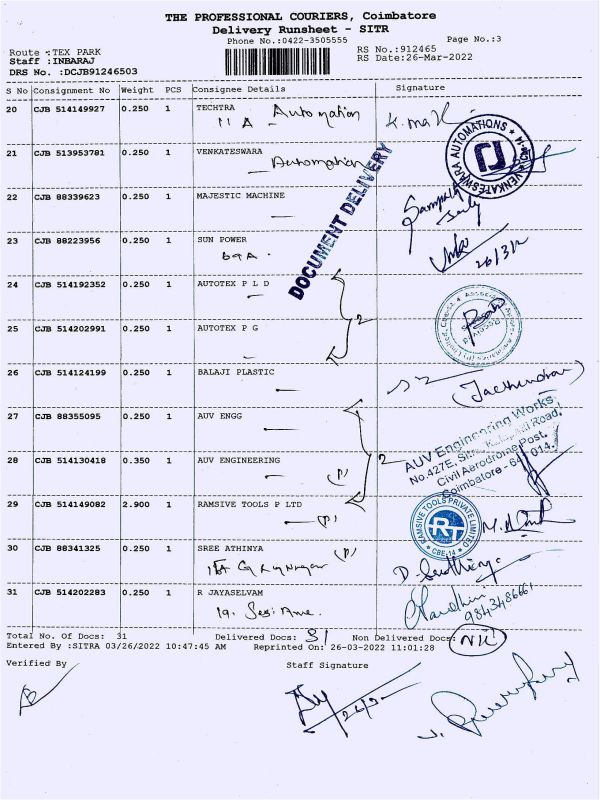 THE PROFESSIONAL COURIERS, Coimbatore
Delivery Runsheet - SITR
Phone No.:0422-3505555 Page No.:3
Route :TEX PARK RS No.:912465
Staff :INBARAJ RS Date:26-Mar-2022
DRS No. :DCJB91246503
S No Consignment No Weight PCS Consignee Details Signature
20 CJB 514149927 0.250 1 TECHTRA
11 A - Automation
21 CJB 513953781 0.250 1 VENKATESWARA
Automation
VENKATESWARA AUTOMATIONS
22 CJB 88339623 0.250 1 MAJESTIC MACHINE
DOCUMENT DELIVERY
23 CJB 88223956 0.250 1 SUN POWER
69A. 26/3/2
24 CJB 514192352 0.250 1 AUTOTEX P L D
2
25 CJB 514202991 0.250 1 AUTOTEX P G
26 CJB 514124199 0.250 1 BALAJI PLASTIC
27 CJB 88355095 0.250 1 AUV ENGG
AUV Engineering Works
No.427E, Road,
Civil Aerodrome Post,
Coimbatore - 641 014.
28 CJB 514130418 0.350 1 AUV ENGINEERING
(P) 2
29 CJB 514149082 2.900 1 RAMSIVE TOOLS P LTD
(P)
RAMSIVE TOOLS PRIVATE LIMITED
RT
CBE-14
30 CJB 88341325 0.250 1 SREE ATHINYA
(P)
31 CJB 514202283 0.250 1 R JAYASELVAM
9843486661
Total No. Of Docs: 31 Delivered Docs: 31 Non Delivered Docs: Nil
Entered By :SITRA 03/26/2022 10:47:45 AM Reprinted On: 26-03-2022 11:01:28
Verified By Staff Signature